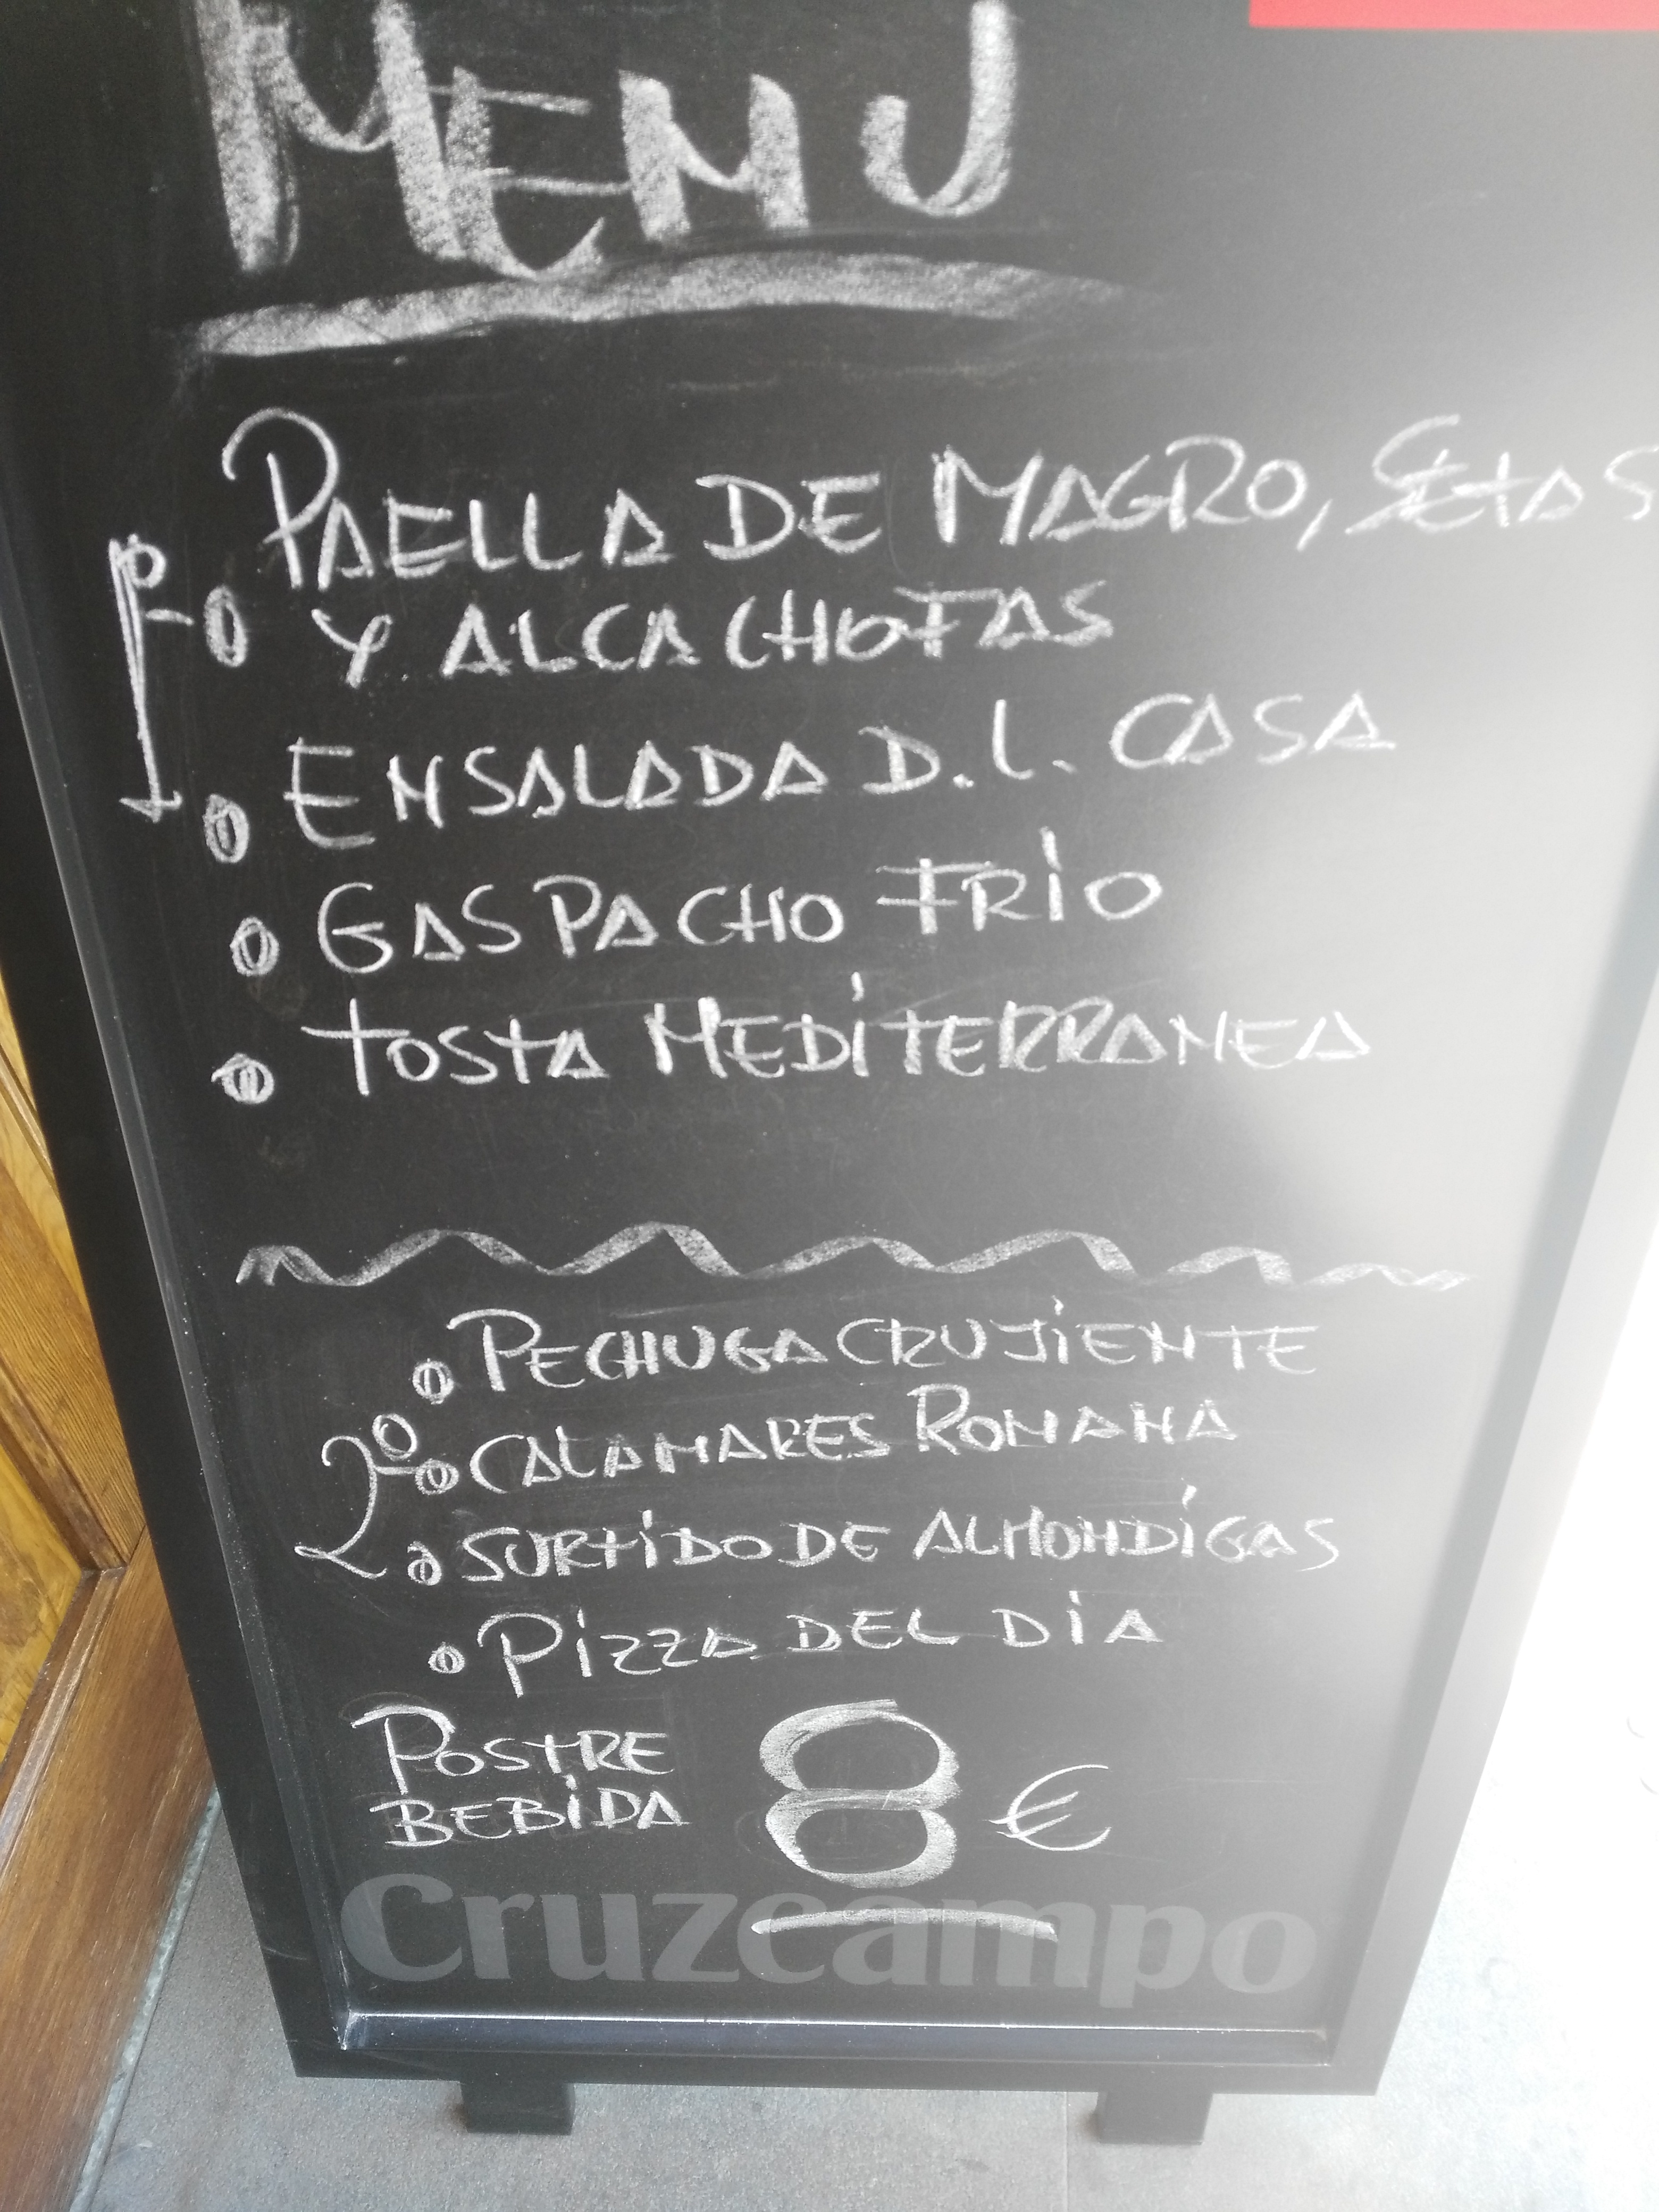 MENU
PAELLA DE MAGRO, SETAS
1º Y ALCACHOFAS
ENSALADA D.L. CASA
GASPACHO FRIO
TOSTA MEDITERRANEA
PECHUGA CRUJIENTE
2º CALAMARES ROMANA
SURTIDO DE ALMONDIGAS
PIZZA DEL DIA
POSTRE
BEBIDA 8 €
Cruzcampo